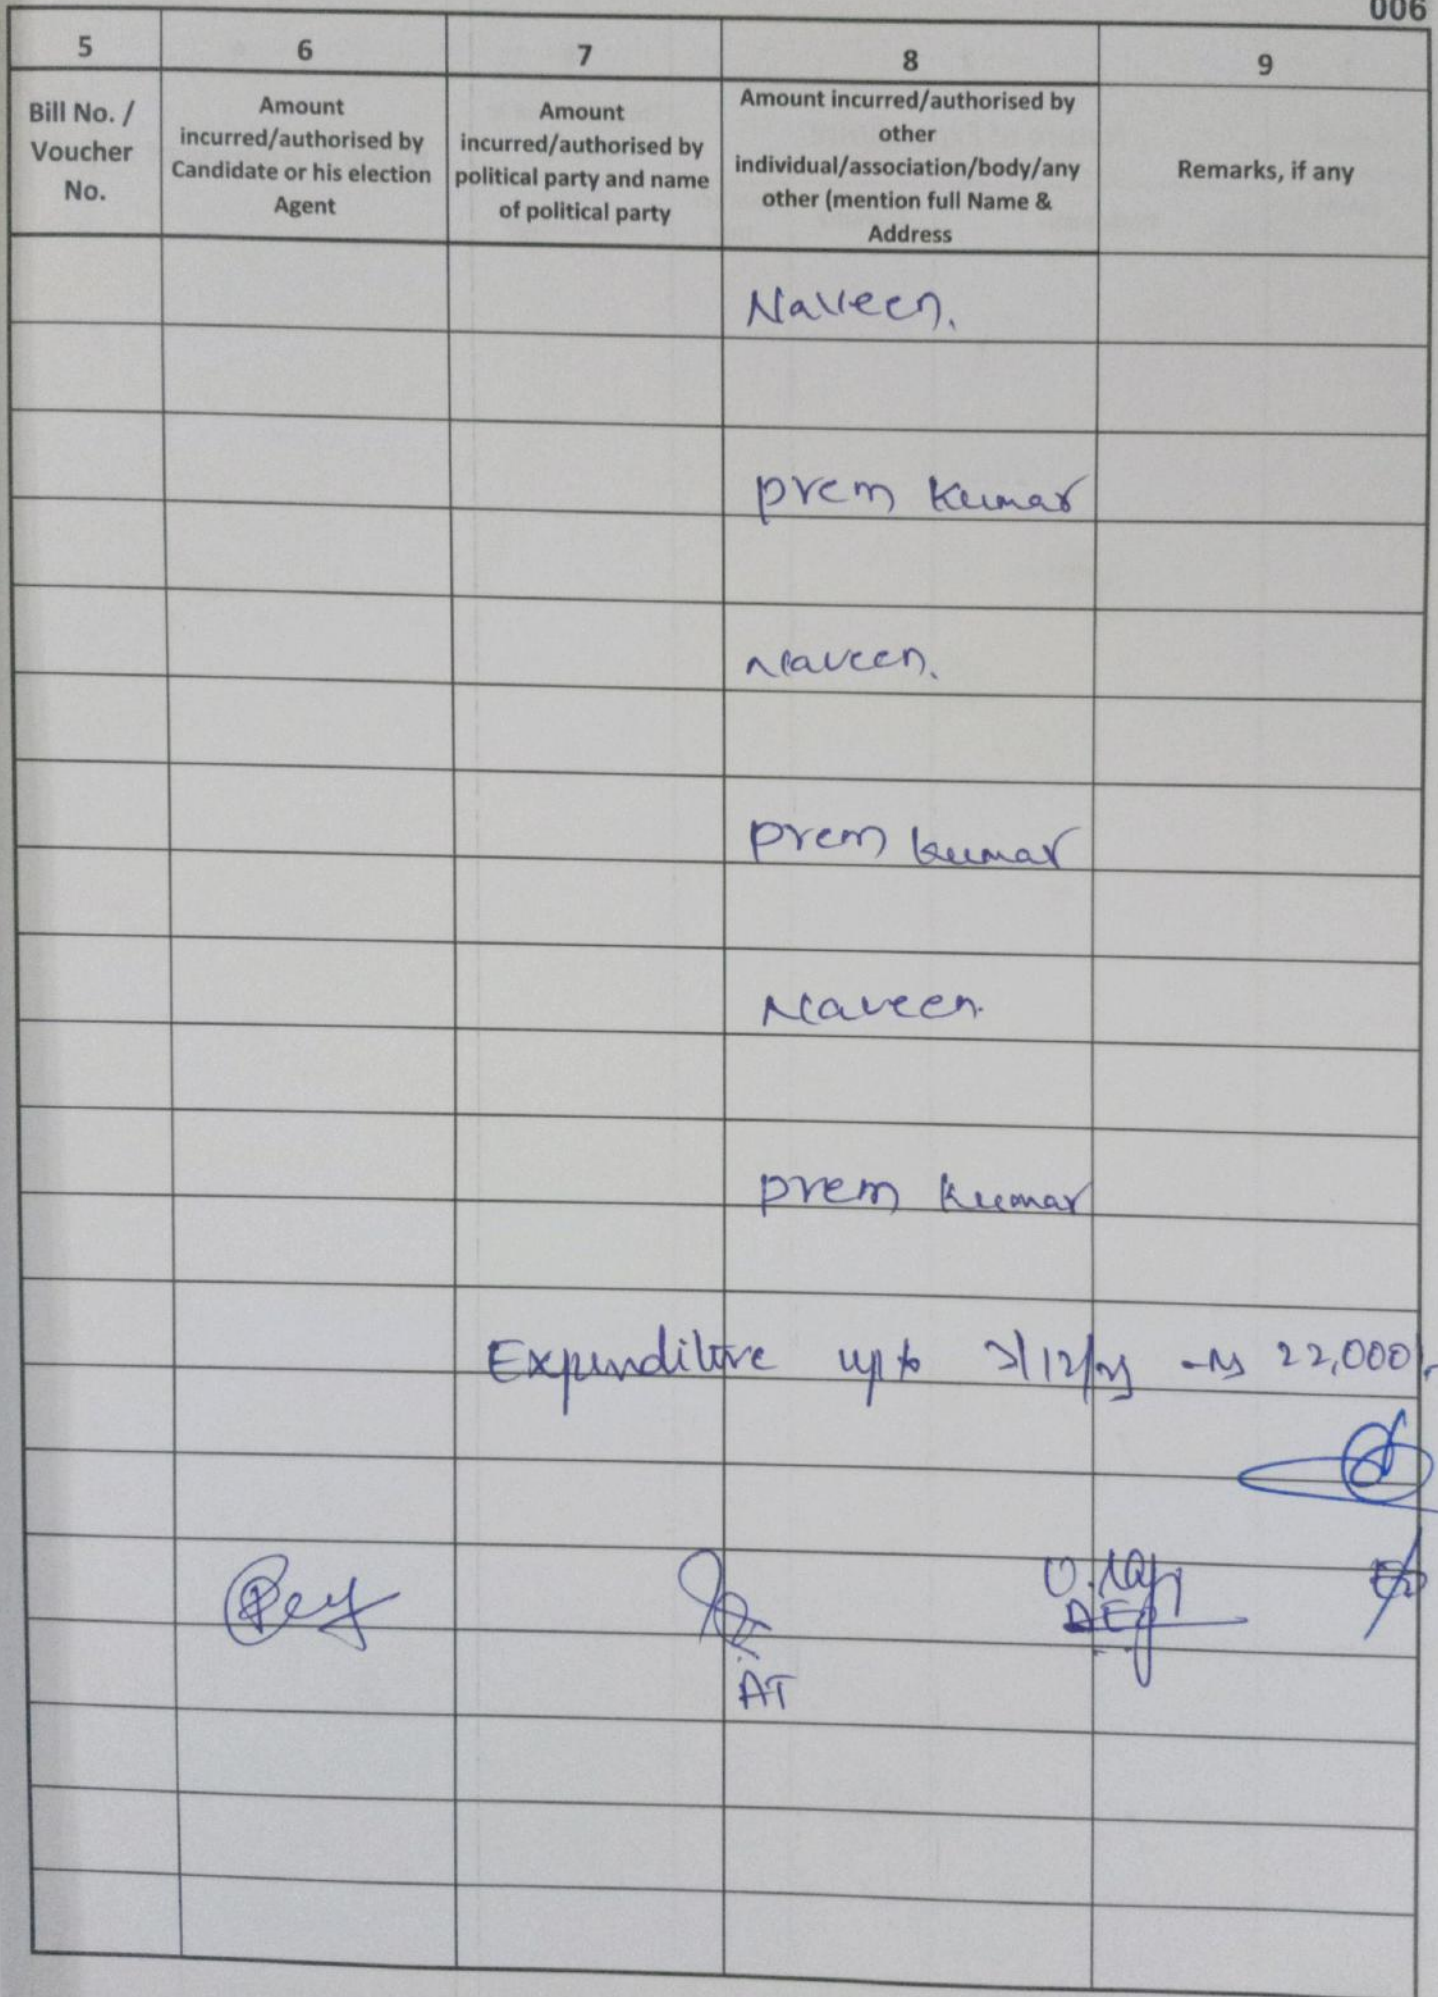 006
5 6 7 8 9
Bill No. / Voucher No.
Amount incurred/authorised by Candidate or his election Agent
Amount incurred/authorised by political party and name of political party
Amount incurred/authorised by other individual/association/body/any other (mention full Name & Address
Remarks, if any
Naveen.
prem Kumar
Naveen.
prem kumar
Naveen.
prem kumar
Expenditure upto 22,000/-
AT